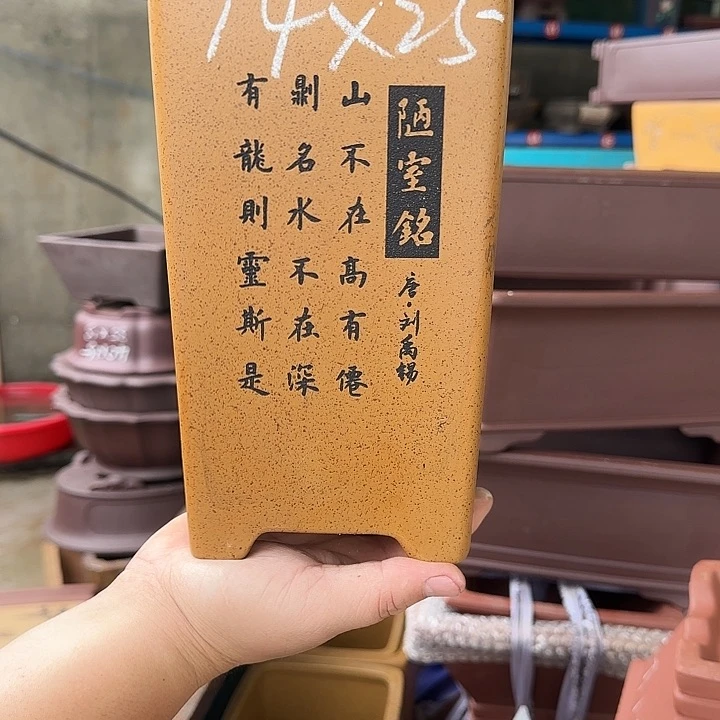 14x25
陋室銘
唐·刘禹楊
山不在高有僊
劓名水不在深
有龍則靈斯是